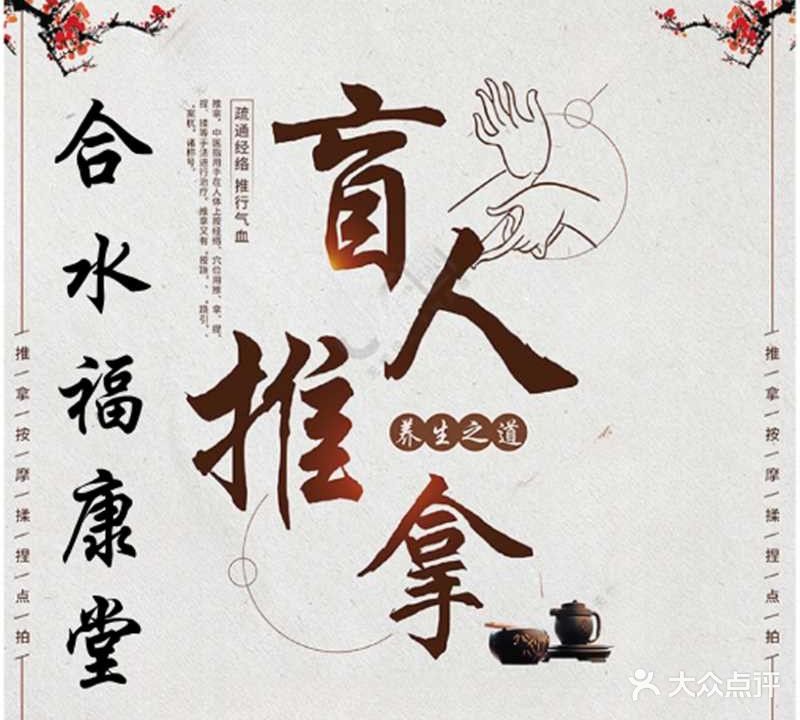 合水福康堂
盲人
推拿
养生之道
疏通经络 推行气血
推拿，中医指用手在人体上按经络、穴位用推、拿、提、
捏、揉等手法进行治疗。推拿又有“按跷”、
推/拿/按/摩/揉/捏/点/拍
推/拿/按/摩/揉/捏/点/拍
大众点评